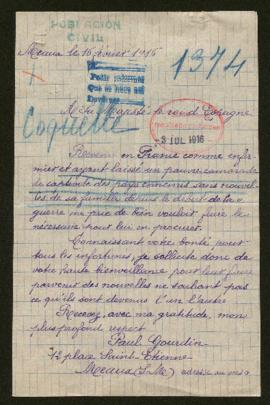 POBLACIÓN
CIVIL
Meaux le 16 1916
1374
A Sa Majesté le roi d'Espagne
Coquelle
3 JUL 1916
Revenu en France comme infir-
mier et ayant laissé un pauvre camarade
de captivité des pays envahis sans nouvel-
les de sa famille depuis le début de la
guerre me prie de bien vouloir faire le
nécessaire pour lui en procurer.
Connaissant votre bonté pour
tous les infortunés je sollicite donc de
votre haute bienveillance pour leur faire
parvenir des nouvelles ne sachant pas
ce qu'ils sont devenus l'un l'autre
Recevez, avec ma gratitude, mon
plus profond respect
Paul Gourdin
12 place Saint-Etienne
Meaux (S.-M.) adresse au verso